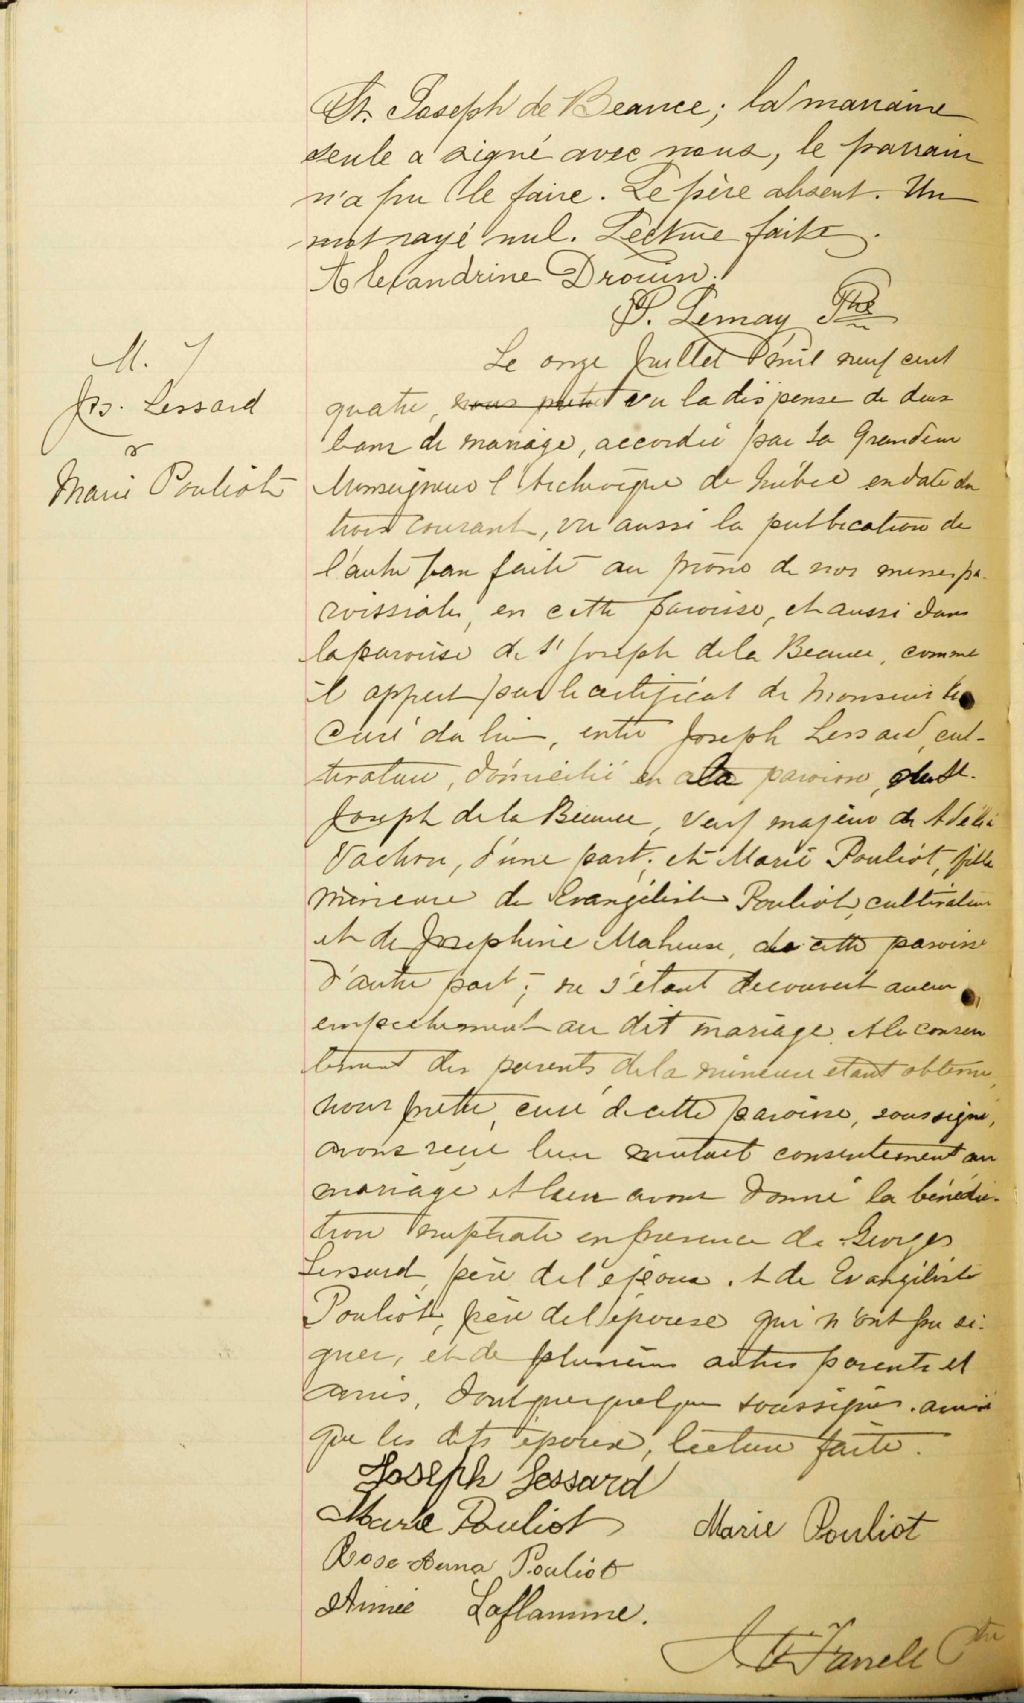 St. Joseph de Beauce; la marraine
seule a signé avec nous, le parrain
n'a pu le faire. Le père absent. Un
mot rayé nul. Lecture faite.
Alexandrine Drouin.
P. Lemay Ptre
M. 7
Jos. Lessard
&
Marie Pouliot
Le onze Juillet mil neuf cent
quatre, nous prêtre vu la dispense de deux
bans de mariage, accordée par Sa Grandeur
Monseigneur l'Archevêque de Québec en date du
trois courant, vu aussi la publication de
l'autre ban faite au prône de nos messes pa-
roissiales, en cette paroisse, et aussi dans
la paroisse de St Joseph de la Beauce, comme
il appert par le certificat de Monsieur le
Curé du lieu, entre Joseph Lessard, cul-
tivateur, domicilié en la paroisse, de St.
Joseph de la Beauce, veuf majeur de Adélia
Vachon, d'une part; et Marie Pouliot, fille
mineure de Evangéliste Pouliot, cultivateur
et de Josephine Maheux, de cette paroisse
d'autre part; ne s'étant découvert aucun
empêchement au dit mariage et le consen
tement des parents de la mineure étant obtenu,
nous prêtre, curé de cette paroisse, soussigné,
avons reçu leur mutuel consentement au
mariage et leur avons donné la bénédic-
tion nuptiale en présence de Georges
Lessard, père de l'époux et de Evangéliste
Pouliot, père de l'épouse qui n'ont pu si-
gner, et de plusieurs autres parents et
amis, dont quelques soussignés ainsi
que les dits époux, lecture faite.
Joseph Lessard
Marie Pouliot Marie Pouliot
Rose Anna Pouliot
Aimée Laflamme.
O'Farrell Ptre